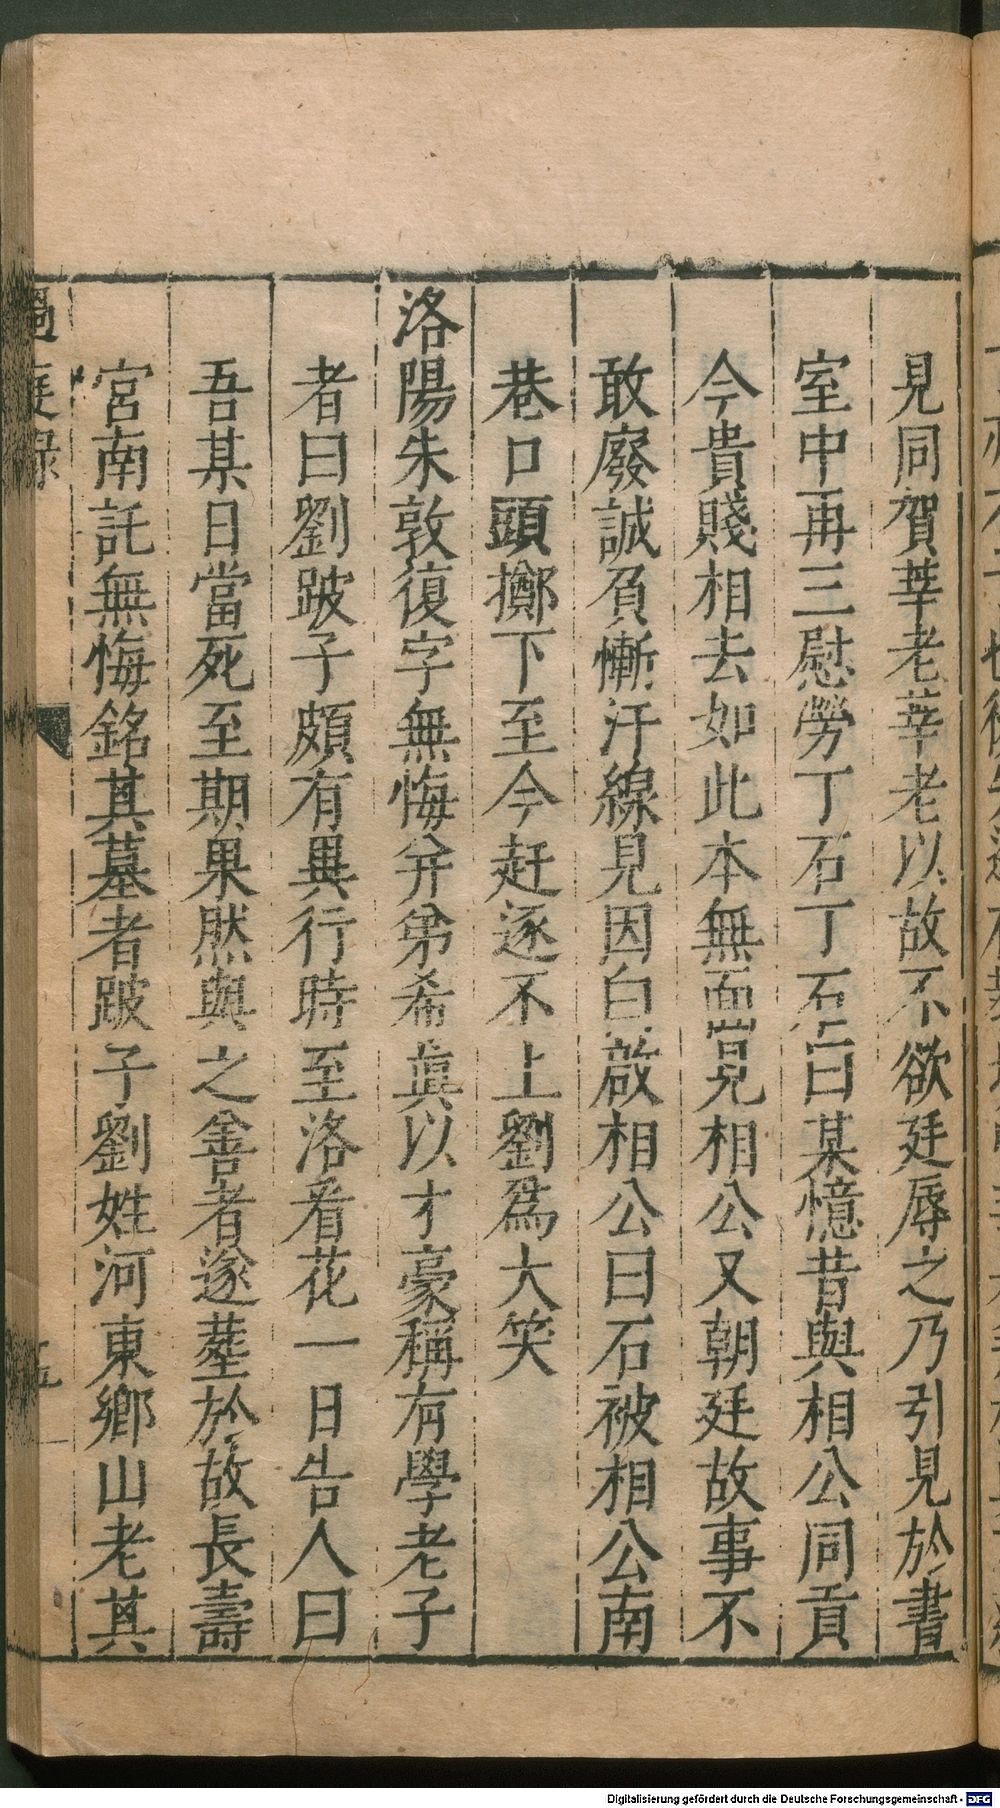 見同賀莘老莘老以故不欲廷辱之乃引見於書
室中再三慰勞丁石丁石曰某憶昔與相公同貢
今貴賤相去如此本無面見相公又朝廷故事不
敢廢誠負慚汗線見因白啟相公曰石被相公南
巷口頭擲下至今赶逐不上劉爲大笑
洛陽朱敦復字無悔并弟希眞以才豪稱有學老子
者曰劉跛子頗有異行時至洛看花一日告人曰
吾某日當死至期果然與之善者遂塟於故長壽
宮南託無悔銘其墓者跛子劉姓河東鄉山老其
過庭錄
五
Digitalisierung gefördert durch die Deutsche Forschungsgemeinschaft - DFG